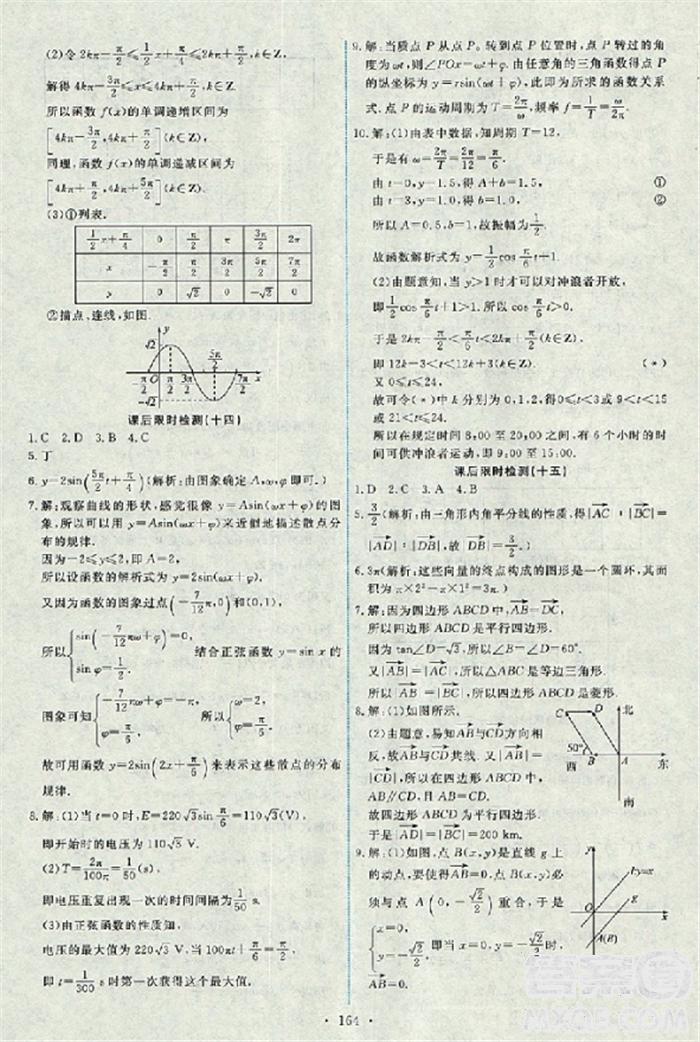 (2)令 2kπ-π/2≤1/2x+π/4≤2kπ+π/2,k∈Z,
解得 4kπ-3π/2≤x≤4kπ+π/2,k∈Z.
所以函数 f(x)的单调递增区间为
[4kπ-3π/2,4kπ+π/2](k∈Z)
同理,函数 f(x)的单调递减区间为
[4kπ+π/2,4kπ+5π/2](k∈Z)
(3)①列表.
1/2x+π/4 0 π/2 π 3π/2 2π
x -π/2 π/2 3π/2 5π/2 7π/2
y 0 √2 0 -√2 0
②描点、连线,如图.
y
√2
5π/2
-π/2 O π/2 3π/2 7π/2 x
-√2
课后限时检测(十四)
1.C 2.D 3.B 4.C
5.丁
6.y=2sin(5π/2t+π/4)(解析:由图象确定 A,ω,φ 即可.)
7.解:观察曲线的形状,感觉很像 y=Asin(ωx+φ)的图
象,所以可以用 y=Asin(ωx+φ)来近似地描述散点分
布的规律.
因为-2≤y≤2,即 A=2,
所以设函数的解析式为 y=2sin(ωx+φ),
又因为函数的图象过点(-7/12π,0)和(0,1),
所以{sin(-7/12πω+φ)=0, sinφ=1/2. 结合正弦函数 y=sin x 的
图象可知{-7/12πω+φ=-π, φ=π/6. 所以{ω=2, φ=π/6.
故可用函数 y=2sin(2x+π/6)来表示这些散点的分布
规律.
8.解:(1)当 t=0 时,E=220√3sin π/6=110√3(V).
即开始时的电压为 110√3(V).
(2)T=2π/100π=1/50(s).
即电压重复出现一次的时间间隔为 1/50 s.
(3)由正弦函数的性质知,
电压的最大值为 220√3(V),当 100πt+π/6=π/2,
即 t=1/300 s 时第一次获得这个最大值.
9.解:当质点 P 从点 P₀ 转到点 P 位置时,点 P 转过的角
度为 ωt,则∠POx=ωt+φ.由任意角的三角函数得点 P
的纵坐标为 y=rsin(ωt+φ),此即为所求的函数关系
式.点 P 的运动周期为 T=2π/ω,频率 f=1/T=ω/2π.
10.解:(1)由表中数据,知周期 T=12,
于是有 ω=2π/T=2π/12=π/6
由 t=0,y=1.5,得 A+b=1.5, ①
由 t=3,y=1.0,得 b=1.0, ②
所以 A=0.5,b=1,故振幅为 1/2.
故函数解析式为 y=1/2cos π/6t+1.
(2)由题意知,当 y>1 时才可以对冲浪者开放,
即 1/2cos π/6t+1>1.所以 cos π/6t>0,
于是 2kπ-π/2<π/6t<2kπ+π/2(k∈Z).
即 12k-3<t<12k+3(k∈Z). (*)
又 0≤t≤24,
故可令(*)中 k 分别为 0,1,2,得 0≤t<3 或 9<t<15
或 21<t≤24.
所以在规定时间 8:00 至 20:00 内,有 6 个小时的时间
可供冲浪者运动,即 9:00 至 15:00.
课后限时检测(十五)
1.D 2.C 3.A 4.B
5.3/2(解析:由三角形内角平分线的性质,得|AC|:|BC|=
|AD|:|DB|,故|AD|/|DB|=3/2.)
6.3π(解析:这些向量的终点构成的图形是一个圆环,其面
积为 π×2²-π×1²=3π.)
7.解:因为四边形 ABCD 中,AB=DC,
所以四边形 ABCD 是平行四边形.
因为 tan∠D=√3,所以∠B=∠D=60°.
又|AB|=|BC|,所以△ABC 是等边三角形.
所以|AB|=|BC|,故四边形 ABCD 是菱形.
8.解:(1)如图所示.
(2)由题意,易知AB与CD方向相
反,故AB与CD共线.又|AB|=
|CD|,所以在四边形 ABCD 中,
AB∥CD.
故四边形 ABCD 为平行四边形,
于是|AD|=|BC|=200 km.
C D 北
50°
西 B A 东
南
9.解:根据题意,点 B(x,y)是直线 g 上
的动点,要使得|AB|最小,点 B 必
须与点 A(0,-√2/2)重合,于是
{x=0, y=-√2/2, 即当 x=0,y=-√2/2时,
y f
g
O x
A(B)
· 164 ·